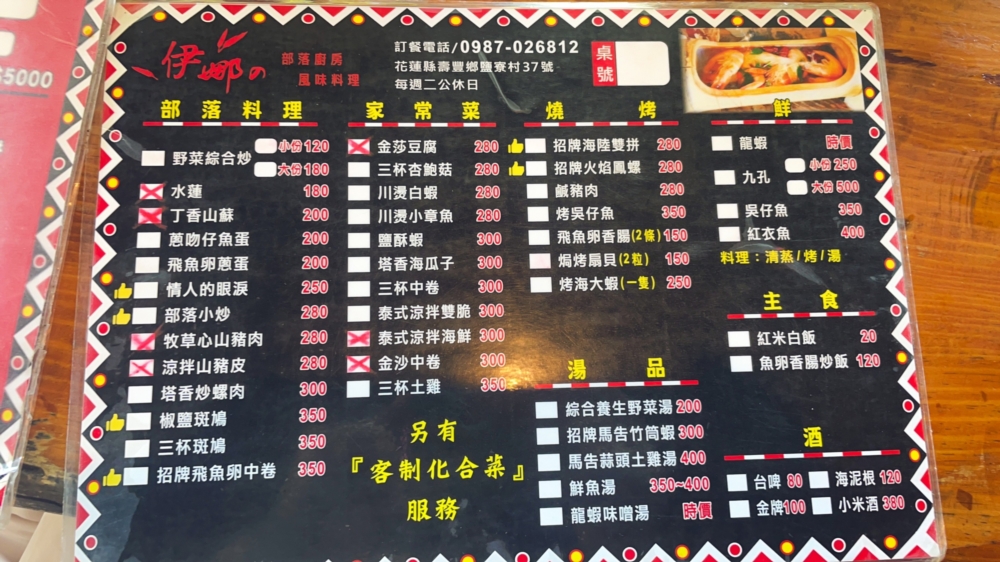 $5000
伊娜の
部落廚房
風味料理
訂餐電話/0987-026812
花蓮縣壽豐鄉鹽寮村37號
每週二公休日
桌號
部落料理
野菜綜合炒 小份120
大份180
水蓮 180
丁香山蘇 200
蔥吻仔魚蛋 200
飛魚卵蔥蛋 200
情人的眼淚 250
部落小炒 280
牧草心山豬肉 280
涼拌山豬皮 280
塔香炒螺肉 300
椒鹽斑鳩 350
三杯斑鳩 350
招牌飛魚卵中卷 350
家常菜
金莎豆腐 280
三杯杏鮑菇 280
川燙白蝦 280
川燙小章魚 280
鹽酥蝦 300
塔香海瓜子 300
三杯中卷 300
泰式涼拌雙脆 300
泰式涼拌海鮮 300
金沙中卷 300
三杯土雞 350
另有
『客制化合菜』
服務
燒烤
招牌海陸雙拼 280
招牌火焰鳳螺 280
鹹豬肉 280
烤吳仔魚 350
飛魚卵香腸(2條) 150
焗烤扇貝(2粒) 150
烤海大蝦(一隻) 250
湯品
綜合養生野菜湯 200
招牌馬告竹筒蝦 300
馬告蒜頭土雞湯 400
鮮魚湯 350~400
龍蝦味噌湯 時價
鮮
龍蝦 時價
九孔 小份250
大份500
吳仔魚 350
紅衣魚 400
料理：清蒸/烤/湯
主食
紅米白飯 20
魚卵香腸炒飯 120
酒
台啤 80 海泥根 120
金牌100 小米酒 380